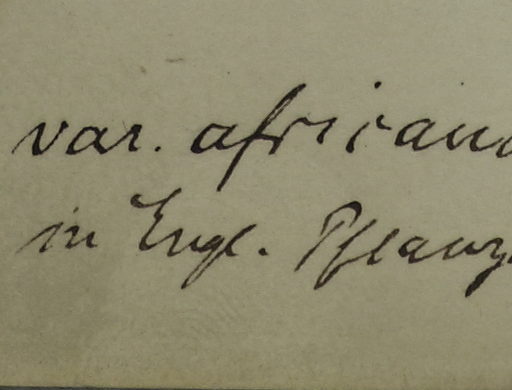 var. african
in Engl. Pflanz